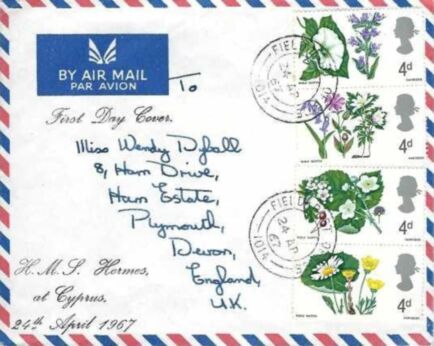 BY AIR MAIL
PAR AVION
To
First Day Cover.
Miss Wendy Dyball
8, Ham Drive,
Ham Estate,
Plymouth,
Devon,
England,
U.K.
H.M.S. Hermes,
at Cyprus.
24th April 1967
FIELD
24 AP
67
1014
4d
4d
FIELD
24 AP
67
1014
4d
4d